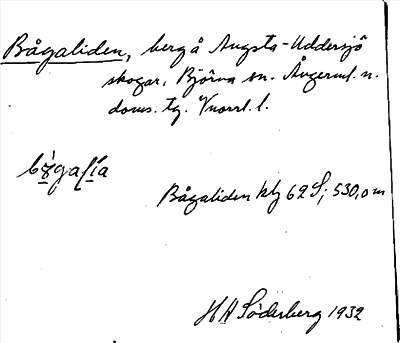 Bågaliden, berg å Augsta-Uddersjö
skogar, Björna sn. Ångerml. n.
doms. tg. Vnorrl. l.
Bågaliden kbg 62 S; 530,0 m
H A Söderberg 1932